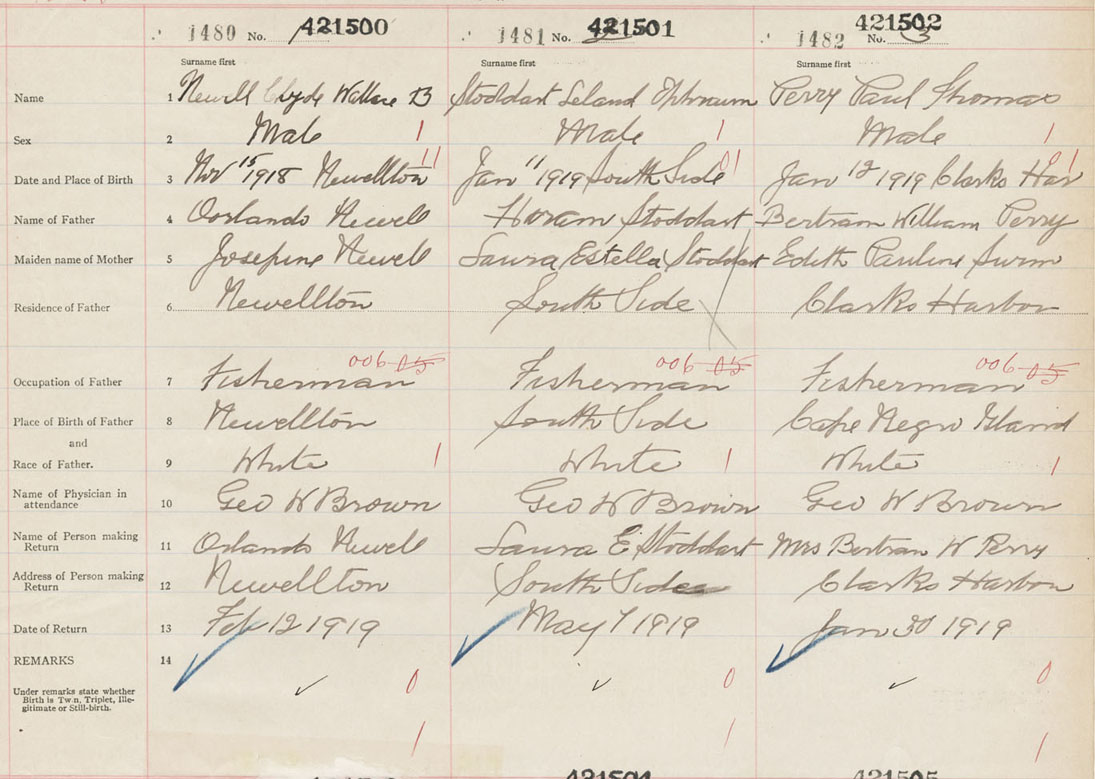 1480 No. 421500 1481 No. 2 421501 1482 No. 3 421502
Surname first Surname first Surname first
Name 1 Newell Clyde Wallace B Stoddart Leland Ephraum Perry Paul Thomas
Sex 2 Male 1 Male 1 Male 1
Date and Place of Birth 3 Nov 15 1918 Newellton 11 Jan 11 1919 South Side 01 Jan 12 1919 Clarks Har 01
Name of Father 4 Oorlando Newell Hiram Stoddart Bertram William Perry
Maiden name of Mother 5 Josephine Newell Laura Estella Stoddart Edith Pauline
Residence of Father 6 Newellton South Side Clarks Harbor
006 05 006 05 006 05
Occupation of Father 7 Fisherman Fisherman Fisherman
Place of Birth of Father 8 Newellton South Side Cape Negro Island
and
Race of Father. 9 White 1 White 1 White 1
Name of Physician in attendance 10 Geo W Brown Geo W Brown Geo W Brown
Name of Person making Return 11 Orlando Newell Laura E Stoddart Mrs Bertran W Perry
Address of Person making Return 12 Newellton South Side Clarks Harbor
Date of Return 13 Feb 12 1919 May 7 1919 Jan 30 1919
REMARKS 14
Under remarks state whether 0 0 0
Birth is Twin, Triplet, Ille-
gitimate or Still-birth.
1 1 1
421504 421505